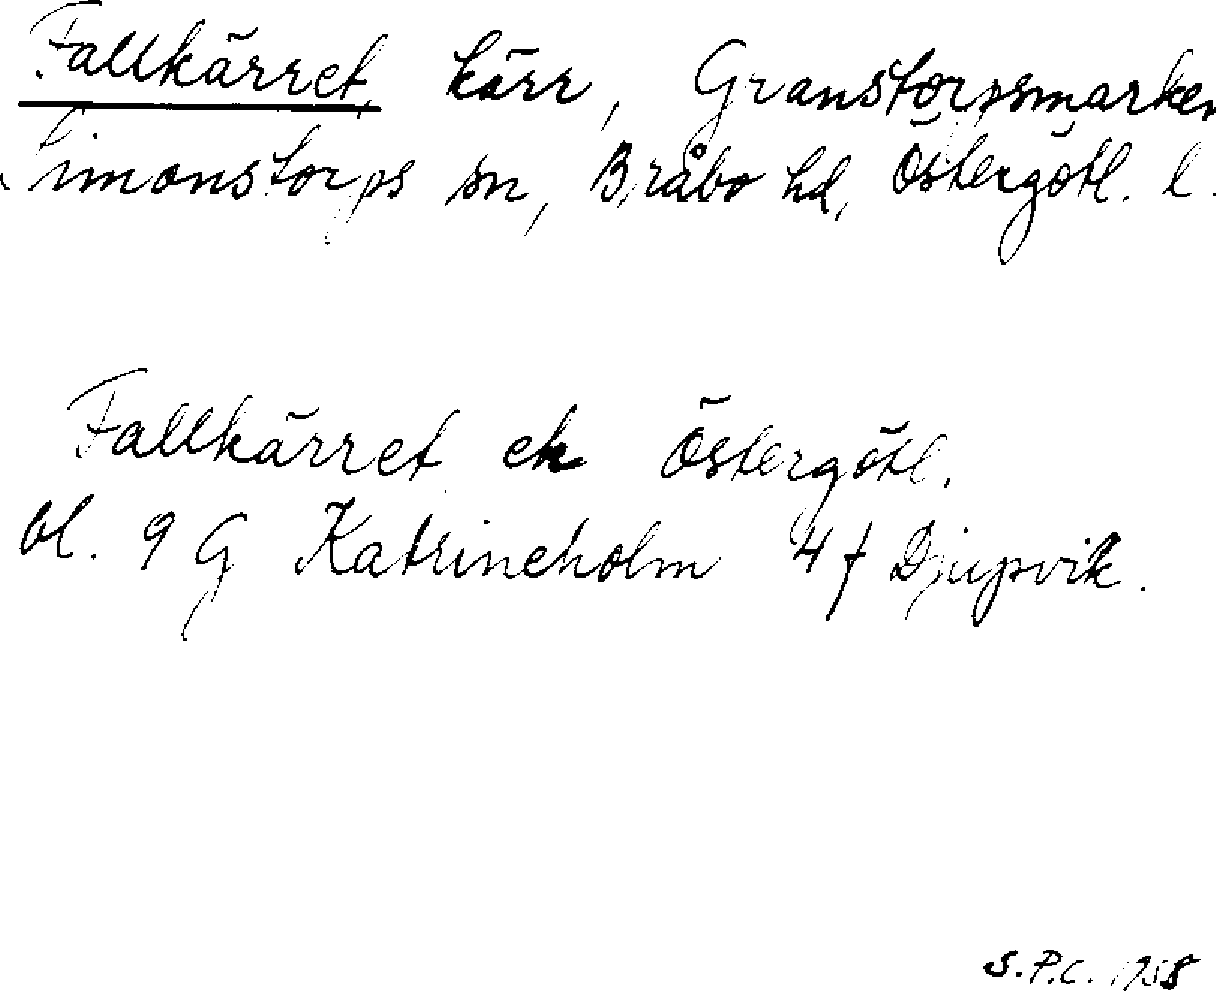 Fallkärret, kärr, Granstorpsmarken
Simonstorps sn, Bråbo hd, Östergötl. l.
Fallkärret ek Östergötl.
bl. 9 G Katrineholm 4 f Djupvik.
S.P.C. 1958